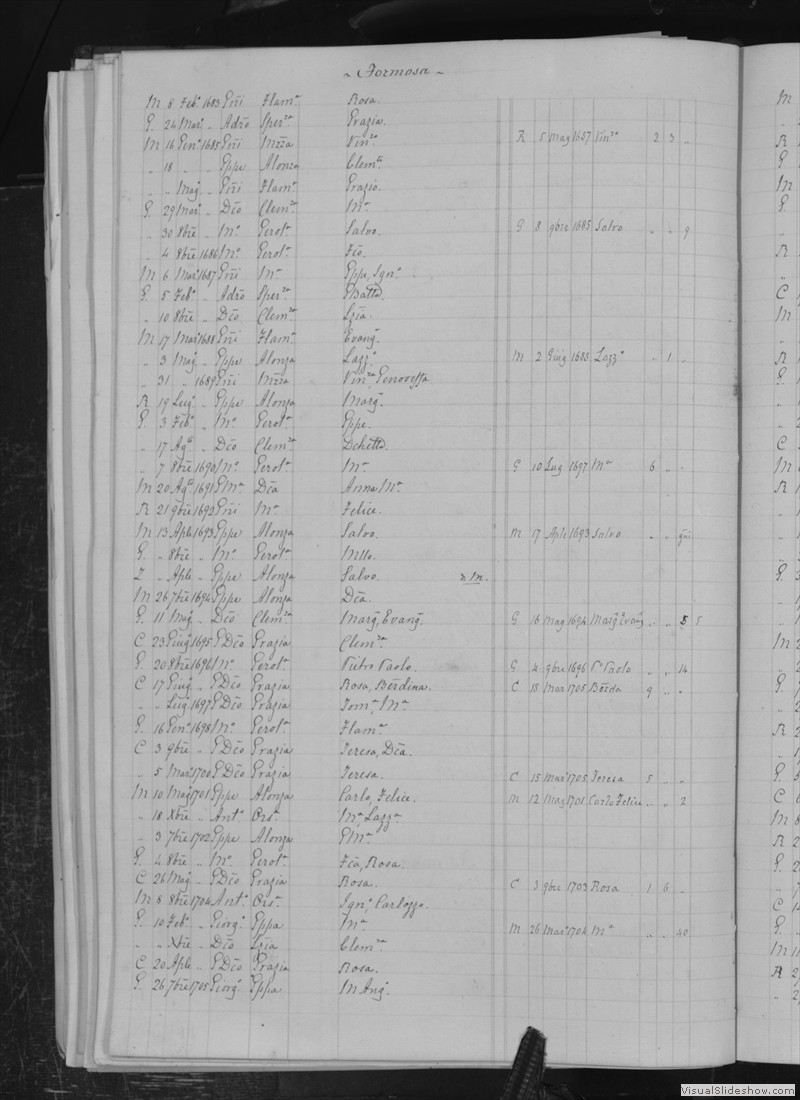 ~ Formosa ~
M 8 Feb.º 1683 Gñi Flam.ª Rosa.
G. 24 Mar.º .. Adrõ Sper.za Grazia.
M 16 Gen.º 1685 Gñi Mzza Vin.zo R 5 Mag 1687 Vin.zo 2 3 ..
.. 18 .. .. Gppe Alonza Clem.te
.. .. Mag .. Gñi Flam.ª Grazio.
G. 29 Mar.º .. Dĩo Clem.za M.ª
.. 30 8bre .. M.º Gerol.ª Salvo. G 8 9bre 1685 Salvo .. .. 9
.. 4 8bre 1686 M.º Gerol.ª Fĩo.
M 6 Mar.º 1687 Gñi M.ª Gppe, Ign.º
G. 5 Feb.º .. Adrõ Sper.za GBatta.
.. 10 8bre .. Dĩo Clem.za
M 17 Mar.º 1688 Gñi Flam.ª Evang.ª
.. 3 Mag .. Gppe Alonza Lazz.º M 2 Giug 1688 Lazz.º .. 1 ..
.. 31 .. 1689 Gñi Mzza Vin.za, Genoveffa
R 19 Lug. .. Gppe Alonza Marg.ª
G. 3 Feb.º .. M.º Gerol.ª Gppe.
.. 17 Ag.º .. Dĩo Clem.za
.. 7 8bre 1690 M.º Gerol.ª M.ª G 10 Lug 1697 M.ª 6 .. ..
M 20 Ag.º 1691 GM.ª Dĩa Anna M.ª
R 21 9bre 1692 Gñi M.ª Felice.
M 13 Aple 1693 Gppe Alonza Salvo. M 17 Aple 1693 Salvo .. ..
G. .. 8bre .. M.º Gerol.ª Mllo.
.. Aple .. Gppe Alonza Salvo.
M 26 7bre 1694 Gppe Alonza Dĩa.
G. 11 Mag .. Dĩo Clem.za Marg.ª, Evang.ª G 16 Mag 1694 Marg.ª Evang.ª .. .. 5 5
C 23 Giug 1695 GDĩo Grazia Clem.za
G. 20 8bre 1696 M.º Gerol.ª Pietro Paolo. G 4 9bre 1696 P.º Paolo .. .. 14
C 17 Giug .. GDĩo Grazia Rosa, Berdina. C 18 Mar 1705 9 .. ..
.. .. Lug 1697 GDĩo Grazia Tom.ª, M.ª
G. 16 Gen.º 1698 M.º Gerol.ª Flam.ª
C 3 9bre .. GDĩo Grazia Teresa, Dĩa.
.. 5 Mar.º 1700 GDĩo Grazia Teresa. C 15 Mar 1705 Teresa 5 .. ..
M 10 Mag 1701 Gppe Alonza Carlo, Felice. M 12 Mag 1701 Carlo Felice .. .. 2
.. 18 Xbre .. Ant.º Ors.ª M.ª Lazz.ª
.. 3 7bre 1702 Gppe Alonza GM.ª
G. 4 8bre .. M.º Gerol.ª Fĩa, Rosa.
C 26 Mag .. GDĩo Grazia Rosa. C 3 9bre 1703 Rosa 1 6 ..
M 8 8bre 1704 Ant.º Ors.ª Ign.º Carlozzo.
G. 10 Feb.º .. Giorg.º Gppa M.ª M 26 Mar 1704 M.ª .. .. 40
.. .. Xbre .. Dĩo Clem.za
C 20 Aple .. GDĩo Grazia Rosa.
G. 26 7bre 1705 Giorg.º Gppa M Ang.ª
VisualSlideshow.com